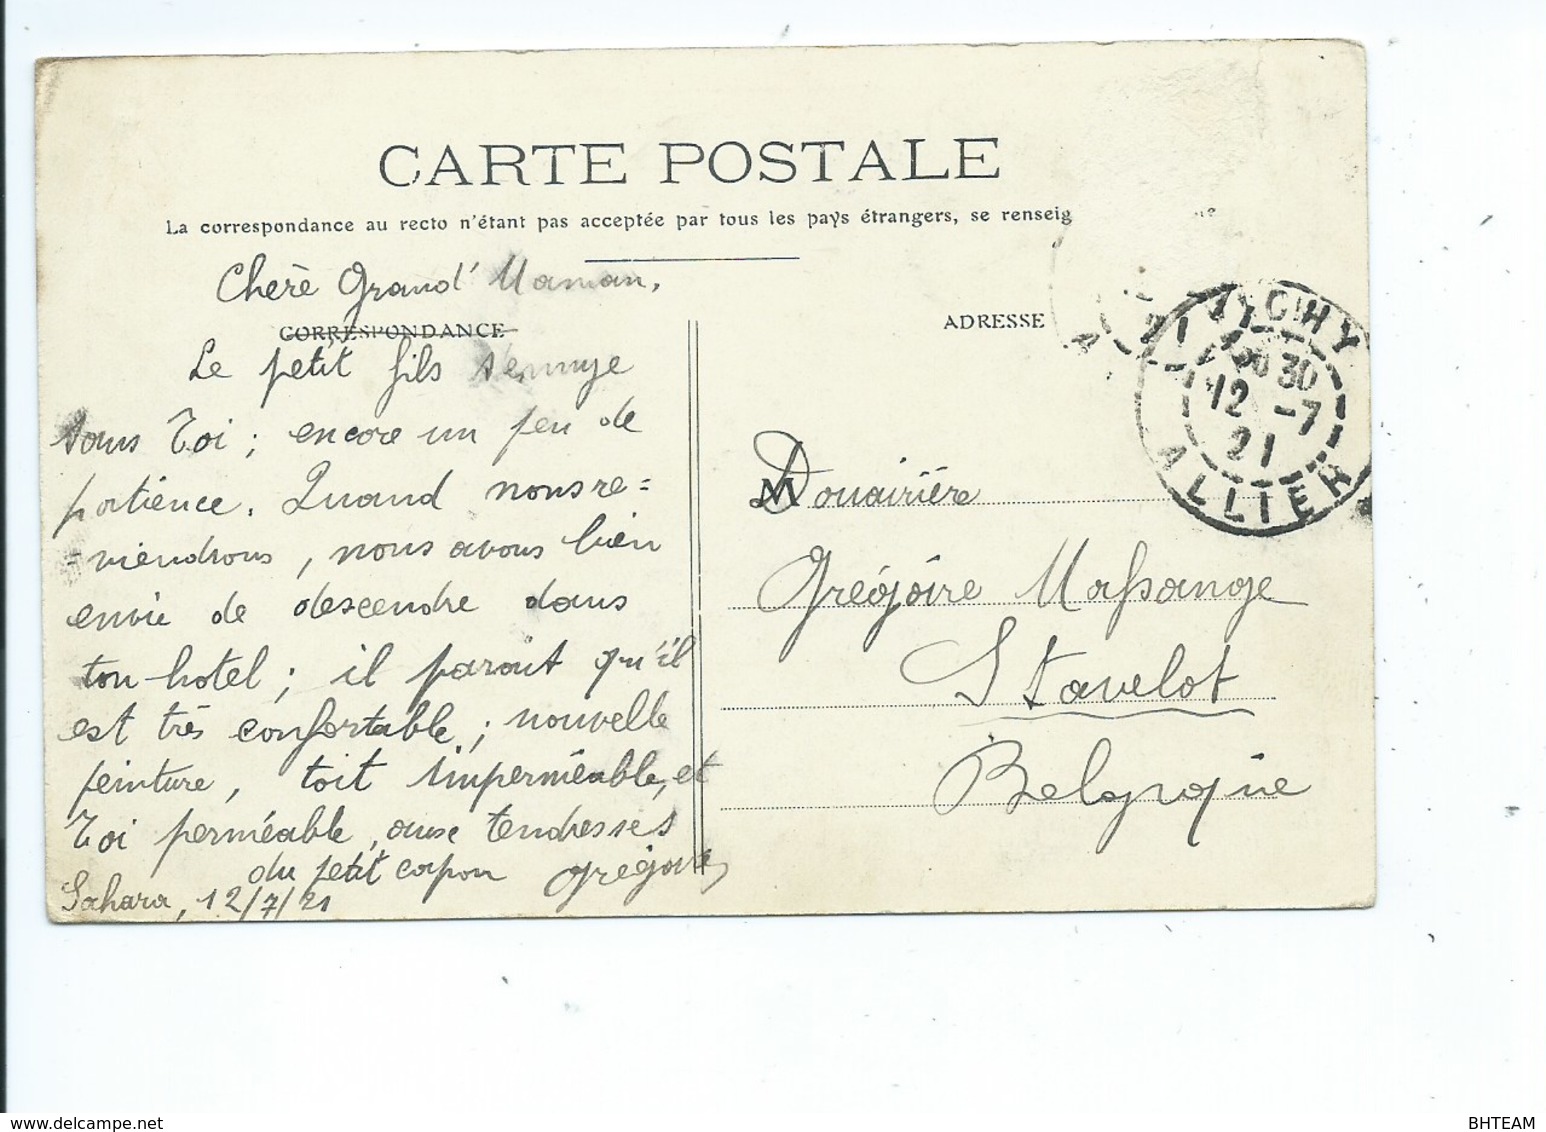 CARTE POSTALE
La correspondance au recto n'étant pas acceptée par tous les pays étrangers, se renseig
Chère Grand' Maman,
CORRESPONDANCE
Le petit fils s'ennuye
sans Toi ; encore un peu de
patience. Quand nous re=
=viendrons, nous avons bien
envie de descendre dans
ton hotel ; il parout qu'il
est très confortable ; nouvelle
peinture, toit imperméable, et
Toi perméable aux tendresses
du petit capon Grégoire,
Sahara, 12/7/21
ADRESSE
M Douairière
Grégoire Massange
Stavelot
Belgique
VICHY
30
12 -7
21
ALLIER
21
BHTEAM